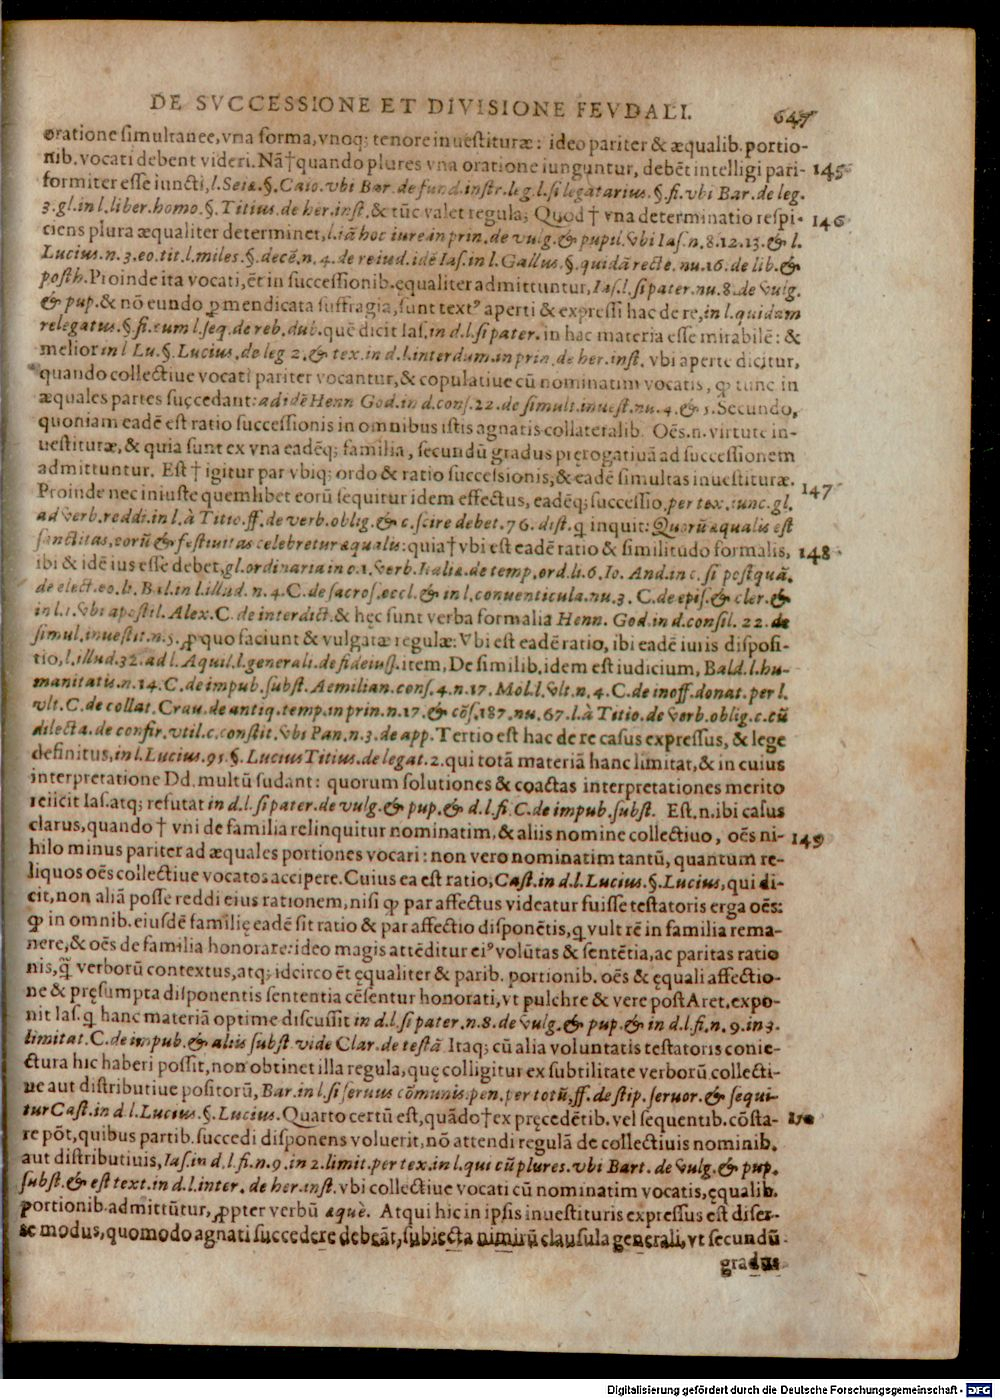 DE SVCCESSIONE ET DIVISIONE FEVDALI. 647
oratione simultanee, vna forma, vnoq; tenore inuestituræ: ideo pariter & æqualib. portio-
nib. vocati debent videri. Nã † quando plures vna oratione iunguntur, debẽt intelligi pari- 145
formiter esse iuncti, l. Seiæ. §. Caio. vbi Bar. de fund. instr. leg. l. si legatarius. §. fi. vbi Bar. de leg.
3. gl. in l. liber. homo. §. Titius. de her. inst. & tũc valet regula; Quod † vna determinatio respi- 146
ciens plura æqualiter determinet, l. iã hoc iure. in prin. de vulg. & pupil. vbi Ias. n. 8. 12. 13. & l.
Lucius. n. 3. eo. tit. l. miles. §. decẽ. n. 4. de re iud. idẽ Ias. in l. Gallus. §. quidã recte. nu. 16. de lib. &
posth. Proinde ita vocati, ẽt in successionib. ęqualiter admittuntur, Ias. l. si pater. nu. 8. de vulg.
& pup. & nõ eundo ꝑ mendicata suffragia, sunt textꝰ aperti & expressi hac de re, in l. quidam
relegatus. §. fi. cum l. seq. de reb. dub. quẽ dicit Ias. in d. l. si pater. in hac materia esse mirabilẽ: &
melior in l Lu. §. Lucius. de leg 2. & tex. in d. l. interdum. in prin. de her. inst. vbi aperte dicitur,
quando collectiue vocati pariter vocantur, & copulatiue cũ nominatim vocatis, ꝙ tunc in
æquales partes succedant: ad idẽ Henn God. in d. cons. 22. de simult. inuest. nu. 4. & 5. Secundo,
quoniam eadẽ est ratio successionis in omnibus istis agnatis collateralib. Oẽs. n. virtute in-
uestituræ, & quia sunt ex vna eadẽq; familia, secundũ gradus pręrogatiuã ad successionem
admittuntur. Est † igitur par vbiq; ordo & ratio successionis, & eadẽ simultas inuestituræ. 147
Proinde nec iniuste quemlibet eorũ sequitur idem effectus, eadẽq; successio, per tex. iunc. gl.
ad verb. reddi. in l. à Titio. ff. de verb. oblig. & c. scire debet. 76. dist. q inquit: Quorũ æqualis est
sanctitas, eorũ & festiuitas celebretur æqualis: quia † vbi est eadẽ ratio & similitudo formalis, 148
ibi & idẽ ius esse debet, gl. ordinaria in c. 1. verb. Italia. de temp. ord. li. 6. Io. And. in c. si postquã.
de elect. eo. li. Bal. in l. illud. n. 4. C. de sacros. eccl. & in l. conuenticula. nu. 3. C. de epis. & cler. &
in l. 1. vbi apostil. Alex. C. de interdict. & hęc sunt verba formalia Henn. God. in d. consil. 22. de
simul. inuestit. n. 5. ꝓ quo faciunt & vulgatæ regulæ: Vbi est eadẽ ratio, ibi eadẽ iuris disposi-
tio, l. illud. 32. ad l. Aquil. l. generali. de fideiuss. item, De similib. idem est iudicium, Bald. l. hu-
manitatis. n. 14. C. de impub. subst. Aemilian. cons. 4. n. 17. Mol. l. vlt. n. 4. C. de inoff. donat. per l.
vlt. C. de collat. Crau. de antiq. temp. in prin. n. 17. & cõs. 187. nu. 67. l. à Titio. de verb. oblig. c. cũ
dilecta. de confir. vtil. c. constit. vbi Pan. n. 3. de app. Tertio est hac de re casus expressus, & lege
definitus, in l. Lucius. 95. §. Lucius Titius. de legat. 2. qui totã materiã hanc limitat, & in cuius
interpretatione Dd. multũ sudant: quorum solutiones & coactas interpretationes merito
reiicit Ias. atq; refutat in d. l. si pater. de vulg. & pup. & d. l. fi C. de impub. subst. Est. n. ibi casus
clarus, quando † vni de familia relinquitur nominatim, & aliis nomine collectiuo, oẽs ni- 149
hilo minus pariter ad æquales portiones vocari: non vero nominatim tantũ, quantum re-
liquos oẽs collectiue vocatos accipere. Cuius ea est ratio, Cast. in d. l. Lucius. §. Lucius, qui di-
cit, non aliã posse reddi eius rationem, nisi ꝙ par affectus videatur fuisse testatoris erga oẽs:
ꝙ in omnib. eiusdẽ familię eadẽ sit ratio & par affectio disponẽtis, q vult rẽ in familia rema-
nere, & oẽs de familia honorare: ideo magis attẽditur eiꝰ volũtas & sentẽtia, ac paritas ratio
nis, q̃ verborũ contextus, atq; idcirco ẽt ęqualiter & parib. portionib. oẽs & ęquali affectio-
ne & pręsumpta disponentis sententia cẽsentur honorati, vt pulchre & vere post Aret. expo-
nit Ias. q hanc materiã optime discussit in d. l. si pater. n. 8. de vulg. & pup. & in d. l. fi. n. 9. in 3.
limitat. C. de impub. & aliis subst. vide Clar. de testã Itaq; cũ alia voluntatis testatoris conie-
ctura hic haberi possit, non obtinet illa regula, quę colligitur ex subtilitate verborũ collecti-
ue aut distributiue positorũ, Bar. in l. si seruus cõmunis. pen. per totũ. ff. de stip. seruor. & sequi-
tur Cast. in d l. Lucius. §. Lucius. Quarto certũ est, quãdo † ex pręcedẽtib. vel sequentib. cõsta- 150
re põt, quibus partib. succedi disponens voluerit, nõ attendi regulã de collectiuis nominib.
aut distributiuis, Ias. in d. l. fi. n. 9. in 2. limit. per tex. in l. qui cũ plures. vbi Bart. de vulg. & pup.
subst. & est text. in d. l. inter. de her. inst. vbi collectiue vocati cũ nominatim vocatis, ęqualib.
portionib. admittũtur, ꝓpter verbũ æque. Atqui hic in ipsis inuestituris expressus est diser-
se modus, quomodo agnati succedere debeãt, subiecta nimirũ clausula generali, vt secundũ
gradus
Digitalisierung gefördert durch die Deutsche Forschungsgemeinschaft - DFG